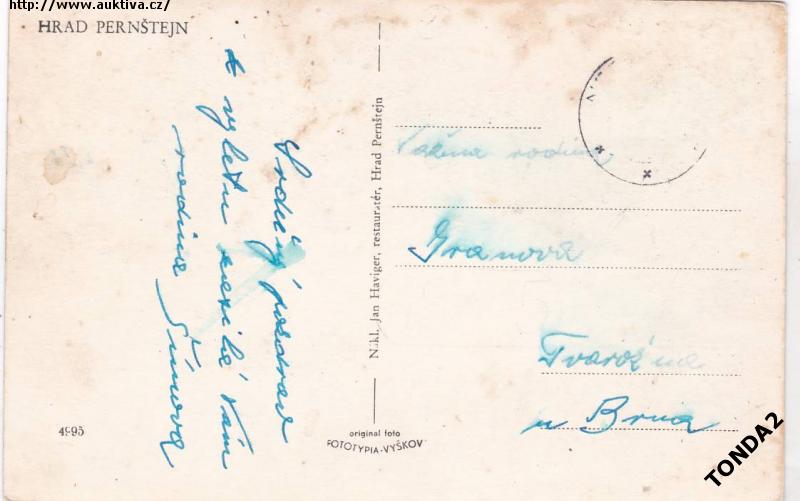 http://www.auktiva.cz/
HRAD PERNŠTEJN
Srdečný pozdrav
z výletu zasílá Vám
rodina Šímova
4995
Nákl. Jan Haviger, restauratér, Hrad Pernštejn
original foto
FOTOTYPIA-VYŠKOV
Vážená rodina
Tvarožna
u Brna
TONDA2